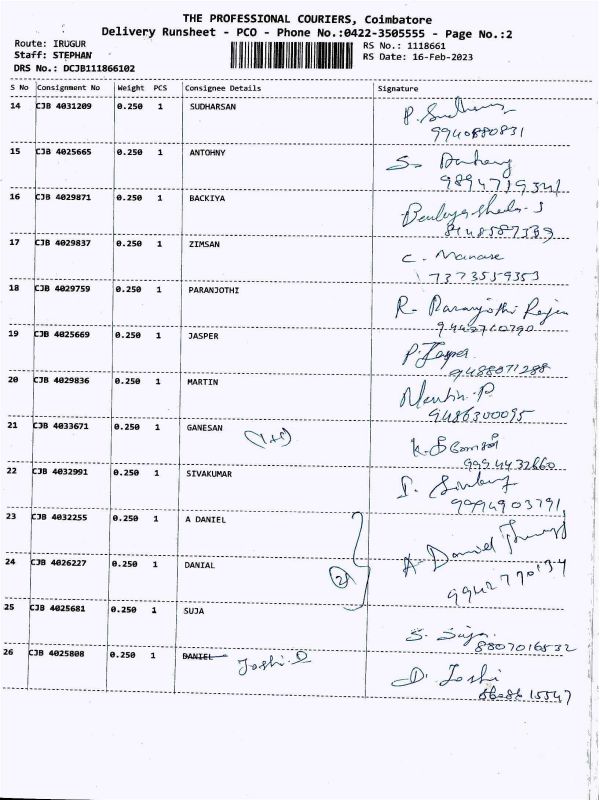 THE PROFESSIONAL COURIERS, Coimbatore
Delivery Runsheet - PCO - Phone No.:0422-3505555 - Page No.:2
Route: IRUGUR
RS No.: 1118661
Staff: STEPHAN
RS Date: 16-Feb-2023
DRS No.: DCJB111866102
S No Consignment No Weight PCS Consignee Details Signature
14 CJB 4031209 0.250 1 SUDHARSAN P.
9940880831
15 CJB 4025665 0.250 1 ANTOHNY S.
16 CJB 4029871 0.250 1 BACKIYA
17 CJB 4029837 0.250 1 ZIMSAN C. Manase
7373559353
18 CJB 4029759 0.250 1 PARANJOTHI R. Paranjothi Rajen
19 CJB 4025669 0.250 1 JASPER P. Jasper
9488071288
20 CJB 4029836 0.250 1 MARTIN Martin. P
9486300095
21 CJB 4033671 0.250 1 GANESAN (1+1) K.
9994432660
22 CJB 4032991 0.250 1 SIVAKUMAR
9994903791
23 CJB 4032255 0.250 1 A DANIEL
A Daniel
24 CJB 4026227 0.250 1 DANIAL 2
9942770134
25 CJB 4025681 0.250 1 SUJA S. Suja
8807016532
26 CJB 4025808 0.250 1 DANIEL Joshi. D D. Joshi